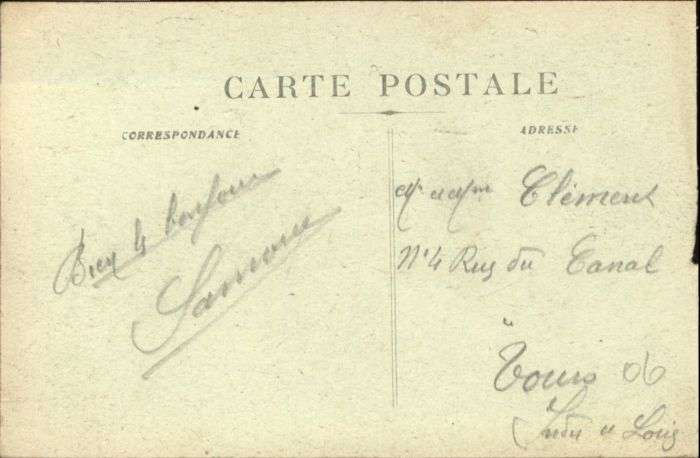 CARTE POSTALE
CORRESPONDANCE
ADRESSE
Bien le bonjour
Mr et Mme Clément
N° 4 Rue du Canal
à
Tours 06
Indre et Loire